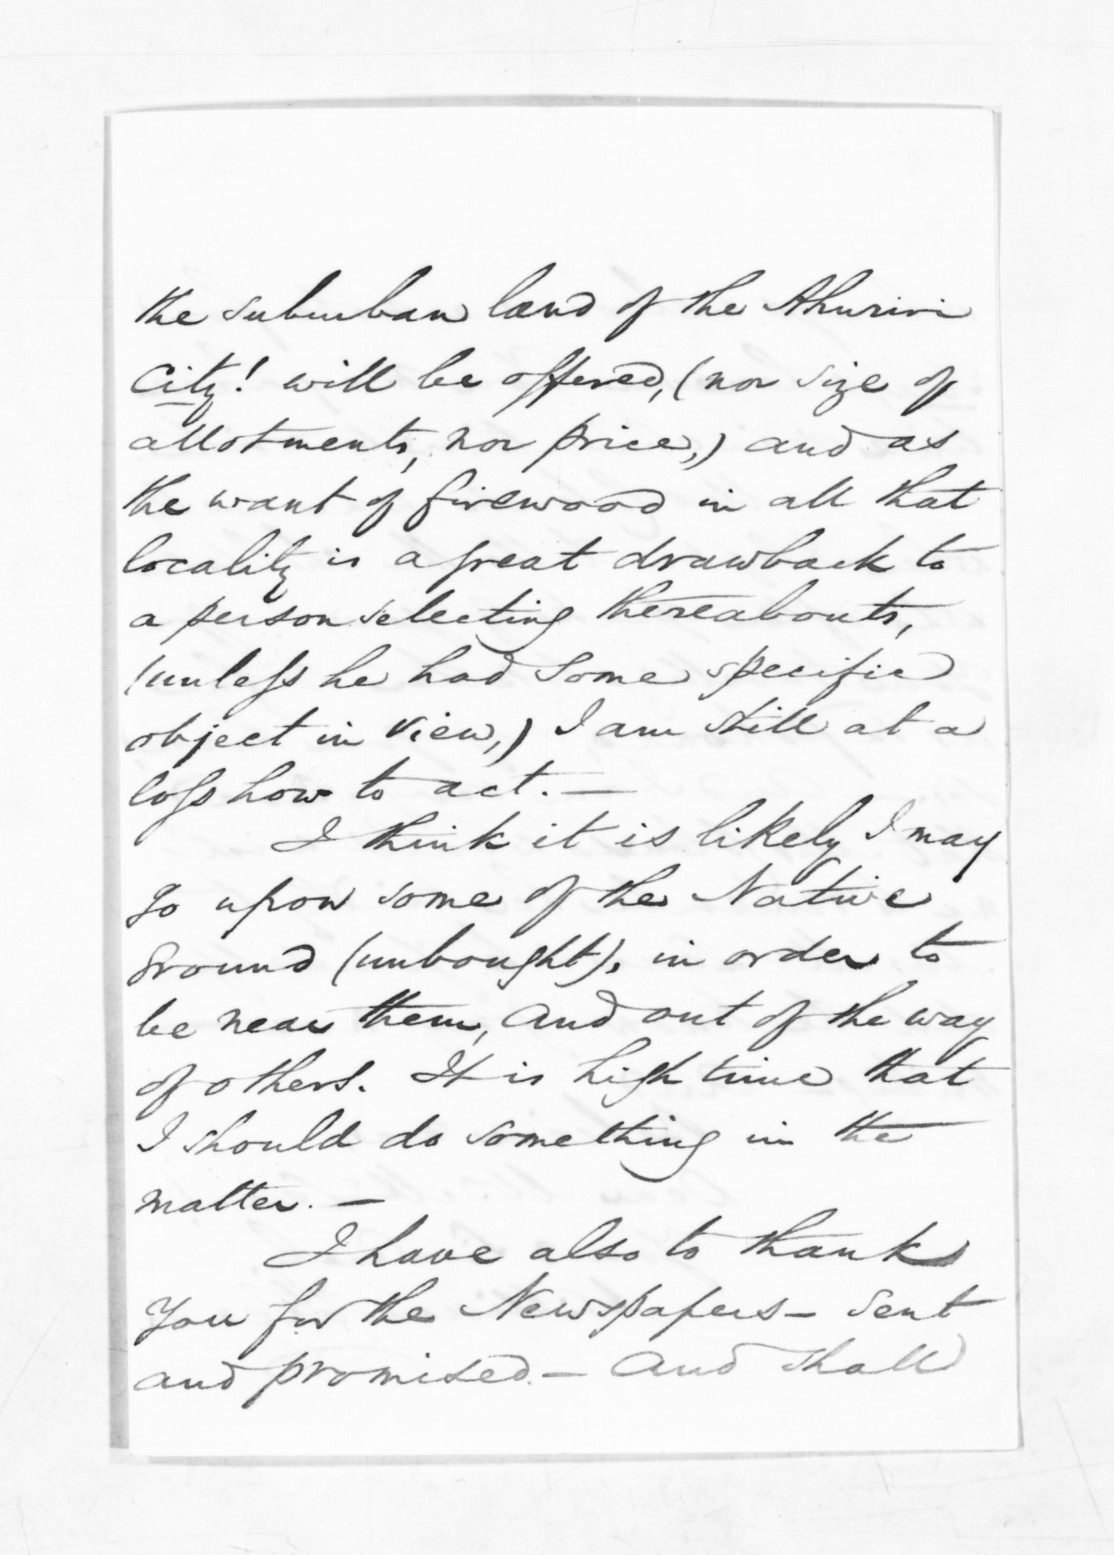 the suburban land of the Ahuriri
City! will be offered, (nor size of
allotments, nor price,) and as
the want of firewood in all that
locality is a great drawback to
a person selecting thereabouts,
(unless he had some specific
object in view,) I am still at a
loss how to act. —
I think it is likely I may
go upon some of the Native
ground (unbought), in order to
be near them, and out of the way
of others. It is high time that
I should do something in the
matter. —
I have also to thank
you for the Newspapers — sent
and promised. — And shall